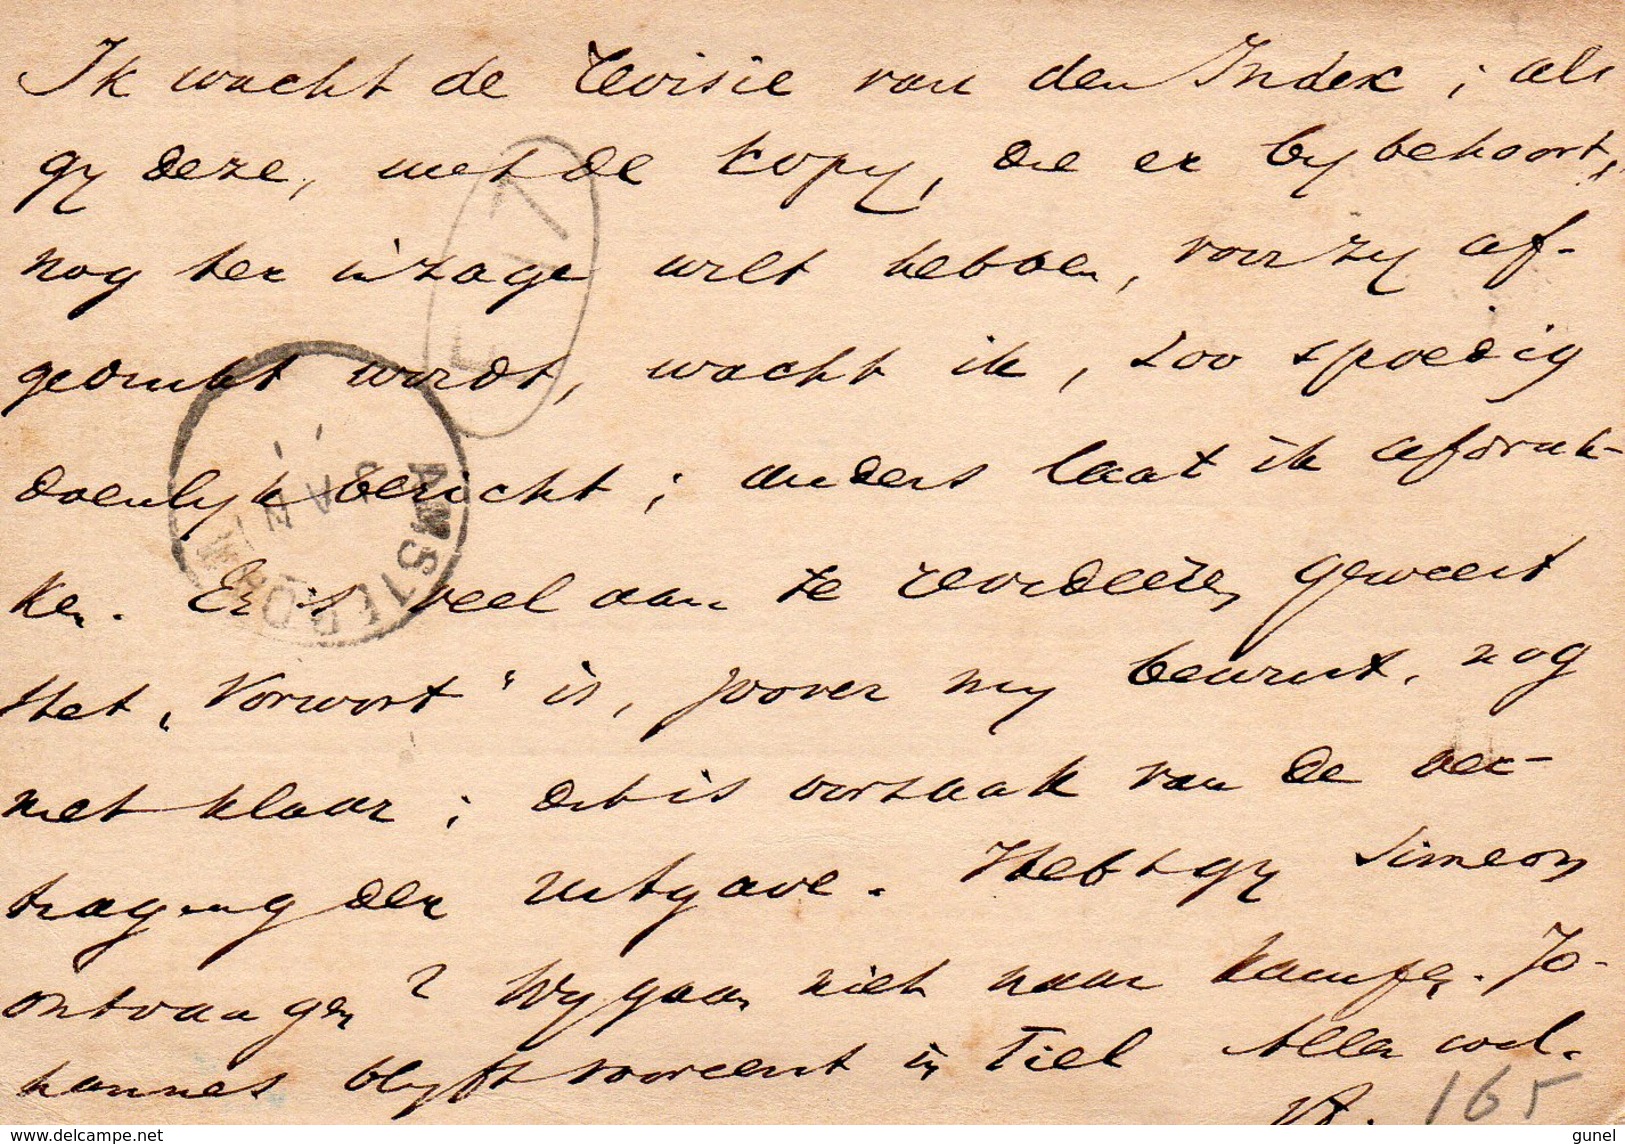 Ik wacht de revisie van den Index; als
gy deze, met de kopy, die er bybehoort,
nog ter inzage wilt hebben, voor zy af-
gedrukt wordt, wacht ik, zoo spoedig
doenlyk bericht; anders laat ik afdruk-
ken. Er is veel aan te verbeteren geweest
Het „Vorwort" is, zoover my bewust, nog
niet klaar; dit is oorzaak van de ver-
traging der uitgave. Hebt gy Simeon
ontvangen? Wy gaan niet naar Kampen. Jo-
hannes blyft vooreerst in Tiel Alles wel.
165
AMSTERDAM
JAN
delcampe.net
gunel